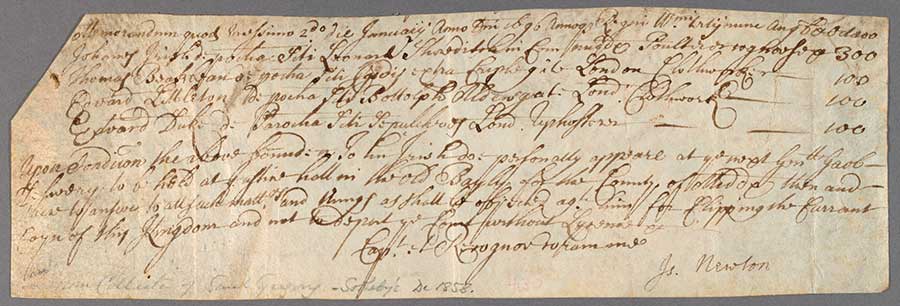 Memorandum quod vicesimo 2do die Januarij Anno Dni 1696 Annoq Regni Wmi Tertij nunc Ang
Johnes Irish de pochia Sti Leonard Shoreditch in Com Poulterer recognosc 300
Thomas de pochia Sti Egidij extra Cripplegate London Clothworker 100
Edward Littleton de pochia Sti Bottolph Aldersgate Lond Clothworker 100
Edvard Duke de Parochia Sti Sepulchres Lond Upholsterer 100
Upon Condicon the above bounden John Irish doe personally appeare at ye next Genll Gaol
delivery to be held at Justice hall in the Old Bayly for the County of Middx then and
there to answer to all such matters and things as shall be objected agt him for Clipping the Currant
Coyn of this Kingdom and not depart ye Court without Lycence
Capt et Recognit coram me
Is. Newton
Collection of - Sotheby's De 1858.